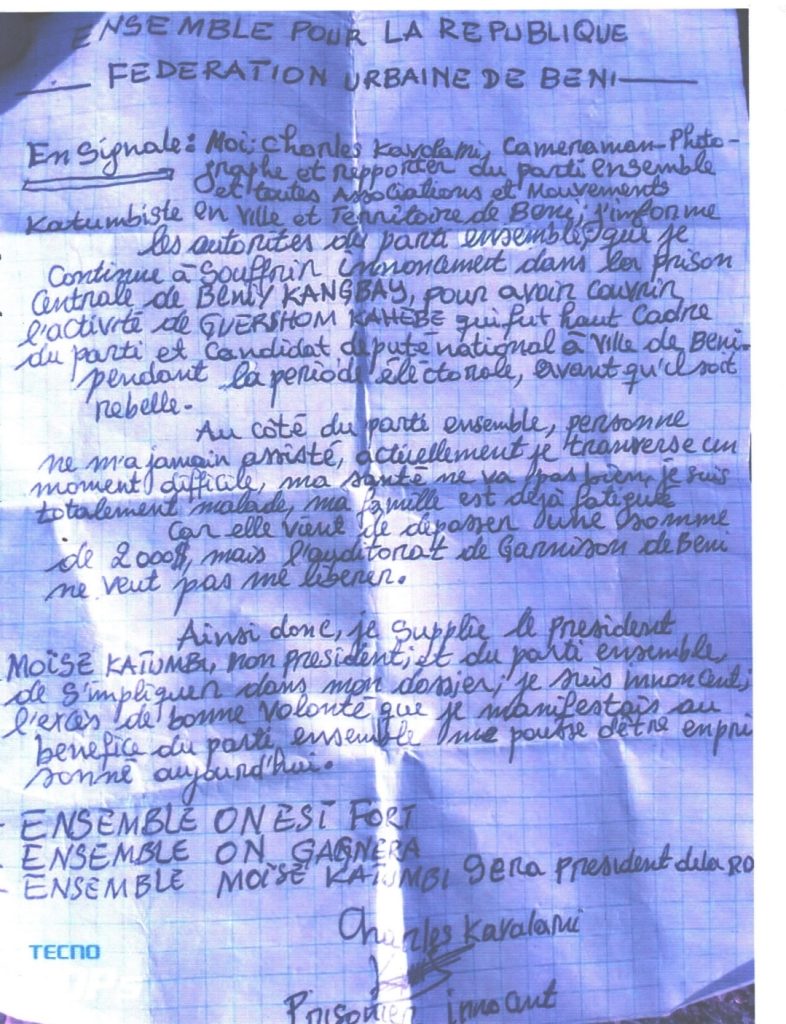 ENSEMBLE POUR LA REPUBLIQUE
FEDERATION URBAINE DE BENI
En Signale: Moi; Charles Kavalami, Cameraman-Photo-
graphe et repporter du parti ensemble
et toutes Associations et Mouvements
Katumbiste en ville et Territoire de Beni; j'informe
les autorités du parti ensemble, que je
Continue à Souffrir innoncement dans la prison
Centrale de BENI/ KANGBAY, pour avoir couvrir
l'activité de GUERSHOM KAHEBE qui fut haut Cadre
du parti et Candidat député national à Ville de Beni-
pendant la période éléctorale, avant qu'il soit
rebelle.
Au côté du parti ensemble, personne
ne m'a jamain assisté, actuellement je transverse un
moment difficile, ma santé ne va pas bien, je suis
totalement malade, ma famille est déjà fatiguée
Car elle vient de dépasser une somme
de 2000$, mais l'auditorat de Garnison de Beni
ne veut pas me liberer.
Ainsi donc, je supplie le président
MOÏSE KATUMBI, mon president, et du parti ensemble,
de s'impliquer dans mon dossier; je suis innoncent;
l'excès de bonne volonté que je manifestais au
benefice du parti ensemble me pousse d'être enpri
sonné aujourd'hui.
- ENSEMBLE ON EST FORT
- ENSEMBLE ON GAGNERA
- ENSEMBLE MOÏSE KATUMBI Sera President de la RD
Charles Kavalami
TECNO
Prisonier innocent